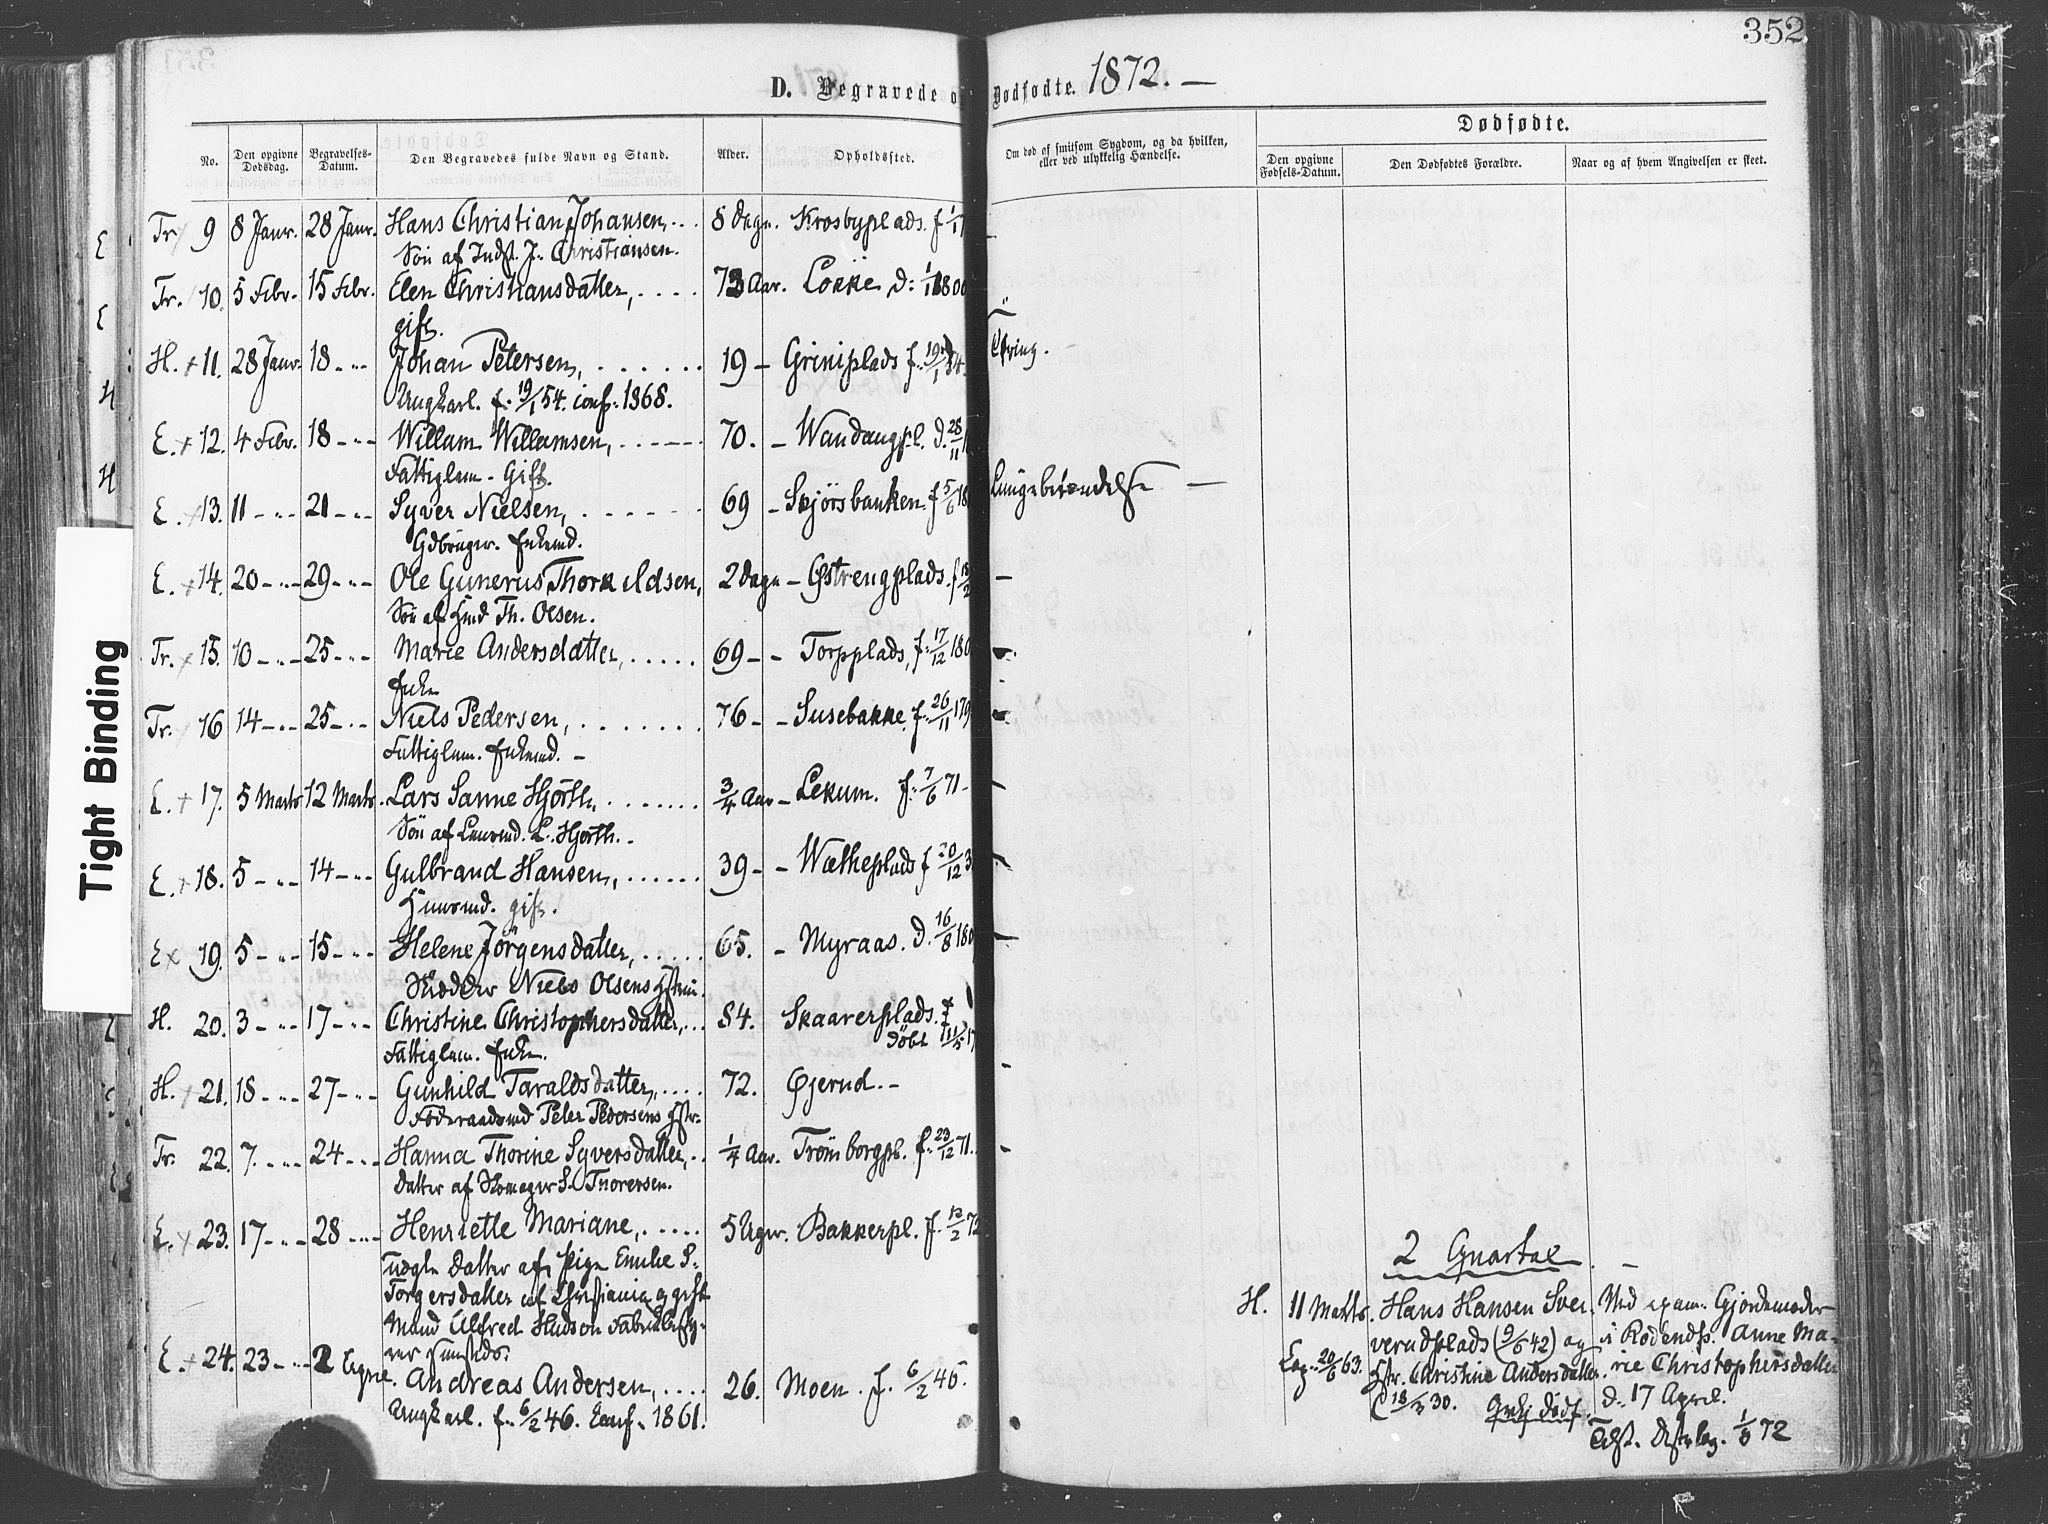 352
D. Begravede o Dødfødte. 1872. —
Dødfødte.
No. Den opgivne Dødsdag. Begravelses-Datum. Den Begravedes fulde Navn og Stand. Alder. Opholdssted. Om død af smitsom Sygdom, og da hvilken, eller ved ulykkelig Hændelse. Den opgivne Fødsels-Datum. Den Dødfødtes Forældre. Naar og af hvem Angivelsen er skeet.
Tr. 9 8 Janr. 28 Janr. Hans Christian Johansen, 8 Dage. Krosbyplads. f 1/1
Søn af Indst. J. Christiansen.
Tr. 10. 5 Febr. 15 Febr. Elen Christiansdatter, 73 Aar. Løkke D: 1/1 1800
gift.
H. + 11. 28 Janr. 18 - " - Johan Petersen, 19 - Griniplads f. 19/1 54 Tæring.
Ungkarl. f. 19/1 54. conf: 1868.
E. + 12. 4 Febr. 18 - " - Willam Willamsen, 70. - Wandangpl. D. 28/11
Fattiglem. Gift.
E. + 13. 11 - " - 21 - " - Syver Nielsen, 69 - Skjørsbanken f 5/6 18 Lungebetændelse —
Gdbruger. Enkemd.
E. + 14. 20 - " - 29 - " - Ole Gunerus Thorkildsen, 2 Dage - Østrengplads. f 18/2
Søn af Hmd Th. Olsen.
Tr. + 15. 10 - " - 25 - " - Marie Andersdatter, 69 - - Torpplads, f. 17/12 180
Enke
Tr. 16 14 - " - 25 - " - Niels Pedersen, 76 - - Susebakke. f. 26/11 179
Fattiglem. Enkemd. -
E. + 17. 5 Marts 12 Marts. Lars Sanne Hjorth, 3/4 Aar - Lekum. f. 7/6 71 -
Søn af Lensmd. L. Hjorth. -
E. + 18. 5 - " - 14 - " - Gulbrand Hansen, 39 - - Wætheplads f 20/12 3
Husmd. gift.
E x 19. 5 - " - 15 - " - Helene Jørgensdatter, 65. - Myraas. D. 16/8 180
Skrædder Niels Olsens Hstru.
H. 20. 3 - " - 17 - " - Christine Christophersdatter, 84. Skaarerplads.
Fattiglem. Enke. Døbt 11/5 17
H. + 21. 18 - " - 27 - " - Gunhild Taraldsdatter, 72. Øjerud. -
Føderaadsmd Peter Pedersens Hstr.
Tr. 22. 7. - " - 24 - " - Hanna Thorine Syversdatter, 1/4 Aar. Trømborgpl. f. 23/12 71.
Datter af Skomager S. Thorersen.
E. + 23. 17 - " - 28 - " - Henriette Mariane, 5 Uger. Bakkerpl. f. 12/2 72
uægte Datter af Pige Emilie S.
Torgersdatter af Christiania og gift
Mand Alfred Hudson
E. + 24. 23 - " - 2 Andreas Andersen, 26. Moen. f. 6/2 46.
Ungkarl. f. 6/2 46. Conf. 1861.
2 Qvartal
H. 11 Marts. Hans Hansen Sver- Ved exam. Gjordemoder
verudplads (9/6 42) og i Rødends. Anne Ma-
20/6 63. Hstr. Christine Andersdatter. rie Christophersdatter
18/ 30. D. 17 April.
72
Tight Binding